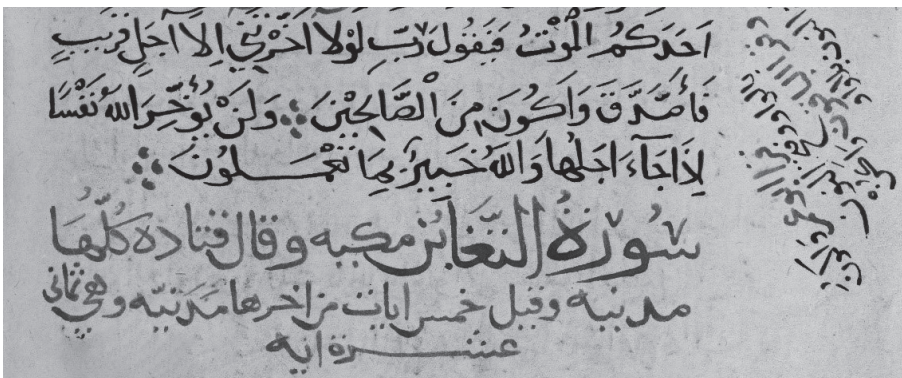 احدكم الموْتُ فيقول ربِّ لوْلا اخَّرْتني إلا اجلٍ قريبٍ
فأصَّدَّقَ وَاكُونَ مِنَ الصَّالحِيْنَ وَلَنْ يُؤخِّرَ اللهُ نَفْسًا
إذَا جَآءَ اجلُها وَاللهُ خبيرٌ بِمَا تعْمَلُونَ
سُورَةُ التَّغَابُن مكيه وقال قتادة كُلُّها
مدنيه وقيل خمس ايات من اخرها مَدَنيّه وهي ثماني
عشرة ايه